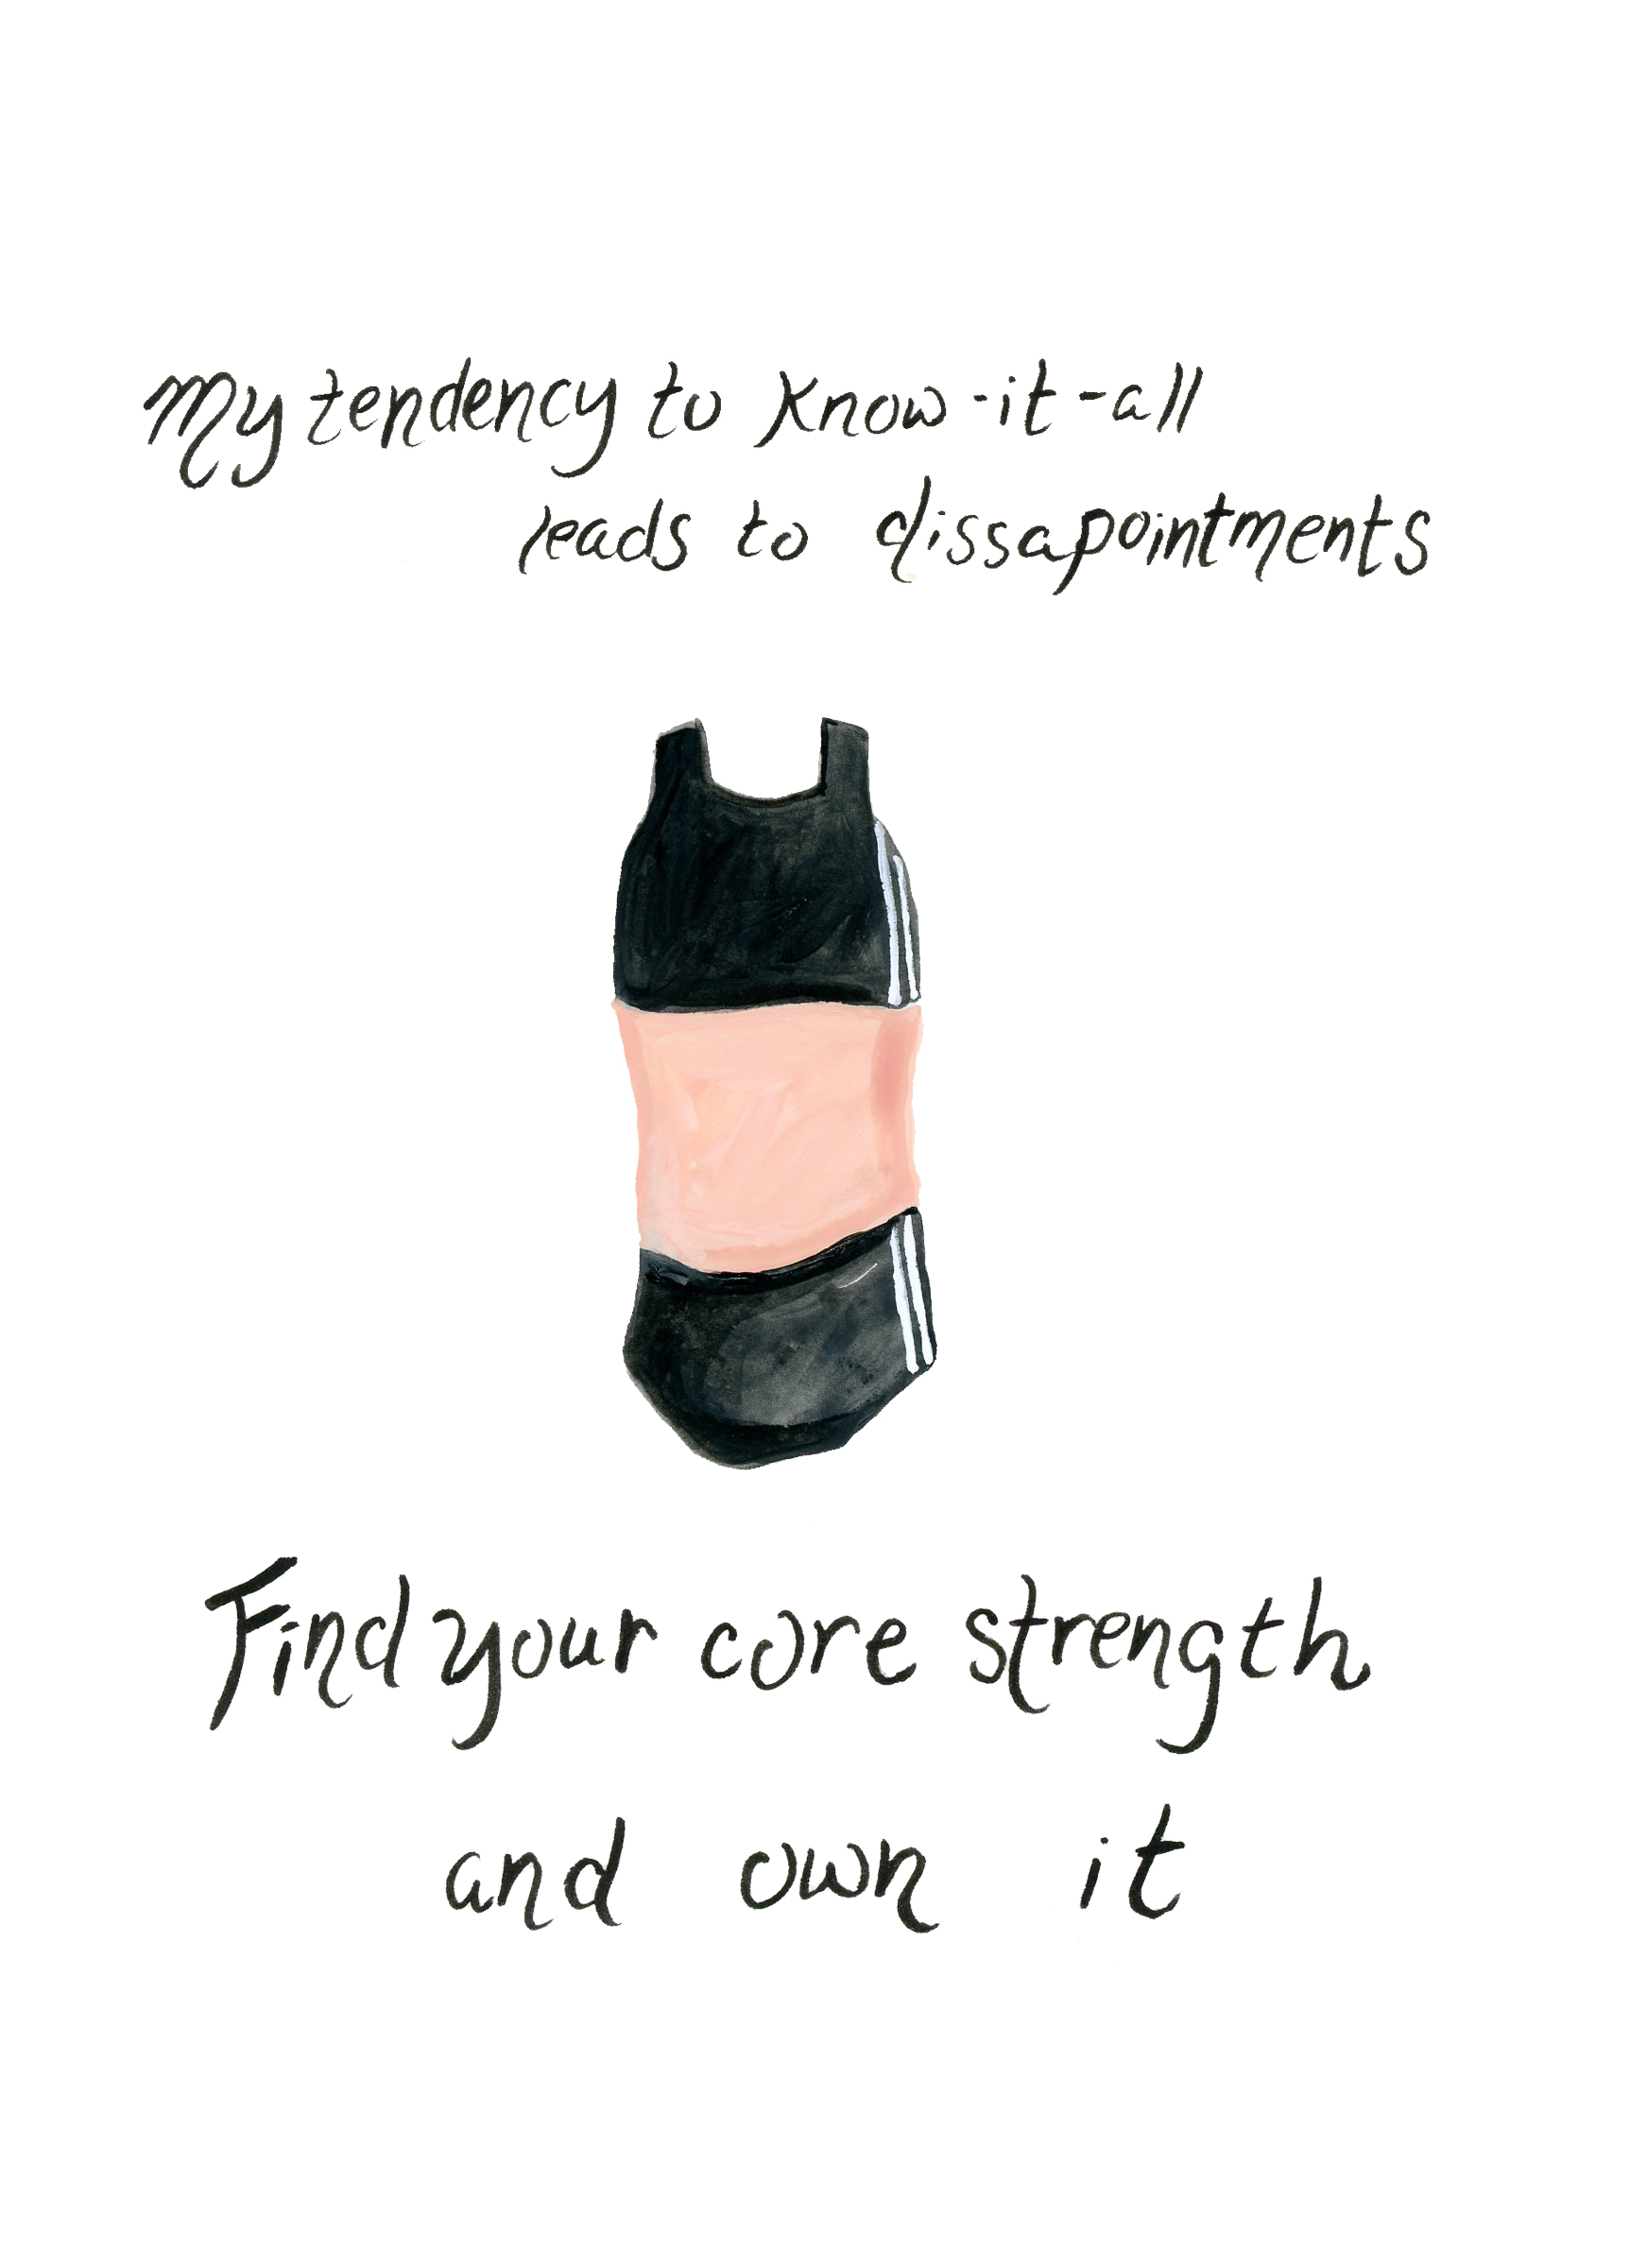 My tendency to know-it-all
leads to dissapointments
Find your core strength
and own it